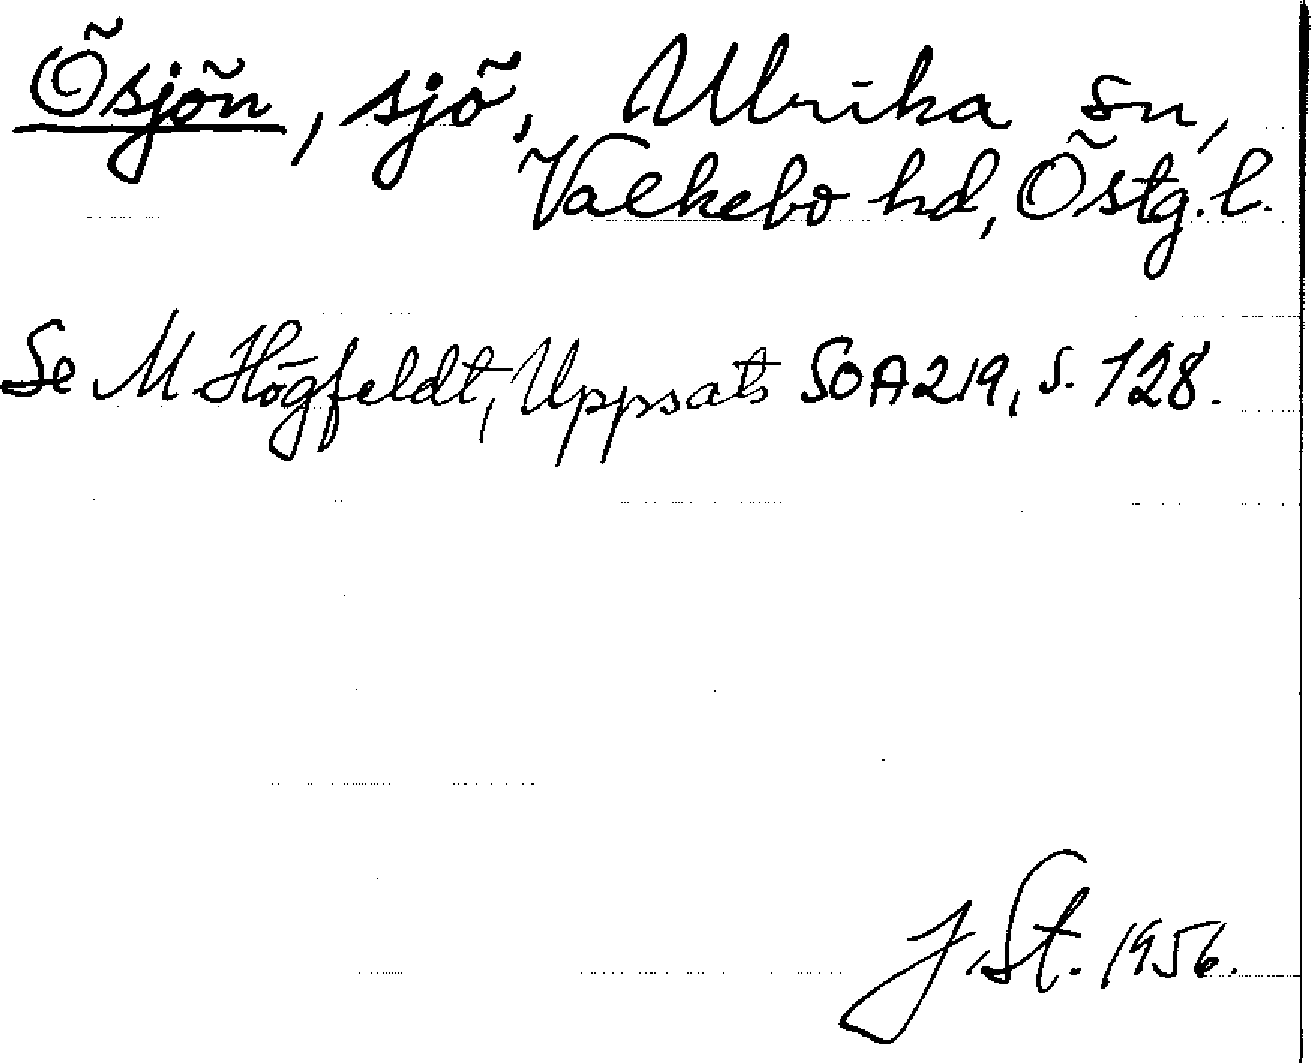 Ösjön, sjö, Ulrika sn,
Valkebo hd, Östg. l.
Se M Högfeldt, Uppsats SOA 219, s. 128.
J. St. 1956.